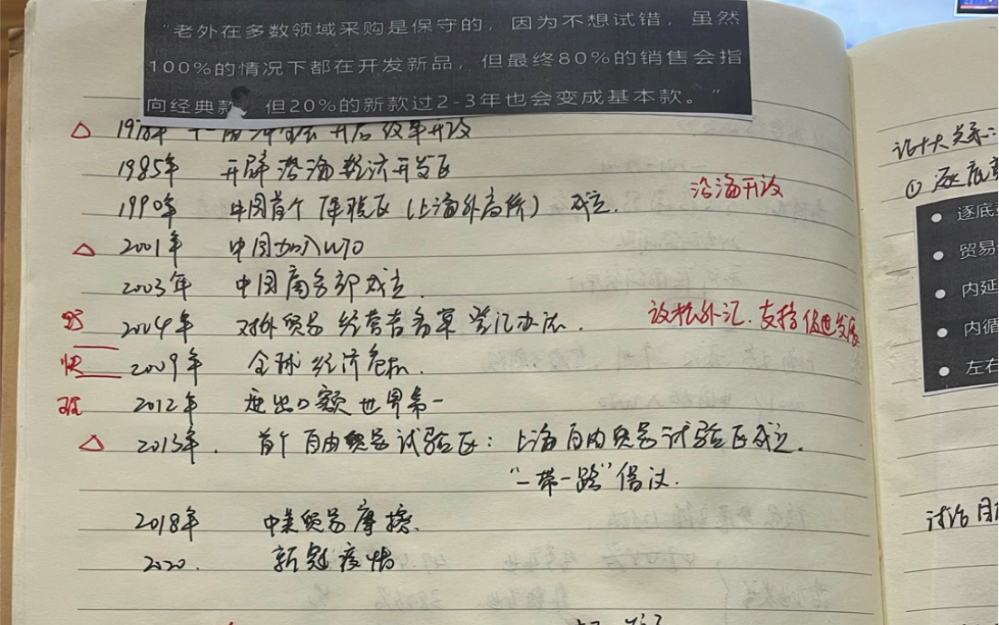 “老外在多数领域采购是保守的，因为不想试错，虽然
100%的情况下都在开发新品，但最终80%的销售会指
向经典款，但20%的新款过2-3年也会变成基本款。”
1978年 十一届三中全会 开启改革开放
1985年 开辟沿海经济开发区
1990年 中国首个保税区（上海外高桥）成立.
沿海开放
2001年 中国加入WTO
2003年 中国商务部成立.
2004年 对外贸易经营者备案登记办法.
放松外汇. 支持
2009年 全球经济危机.
快
2012年 进出口额世界第一
班
2013年. 首个自由贸易试验区：上海自由贸易试验区成立.
“一带一路”倡议.
2018年 中美贸易摩擦.
2020. 新冠疫情
论十大关系：
①逐底
逐底
贸易
内延
内循
左右
讨论